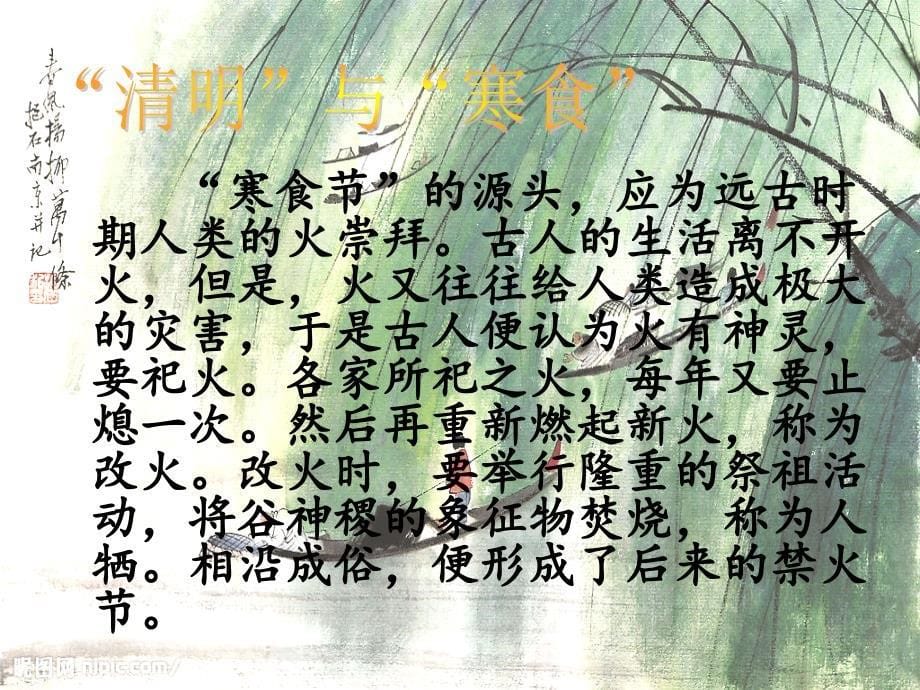 “清明”与“寒食”
“寒食节”的源头，应为远古时
期人类的火崇拜。古人的生活离不开
火，但是，火又往往给人类造成极大
的灾害，于是古人便认为火有神灵，
要祀火。各家所祀之火，每年又要止
熄一次。然后再重新燃起新火，称为
改火。改火时，要举行隆重的祭祖活
动，将谷神稷的象征物焚烧，称为人
牺。相沿成俗，便形成了后来的禁火
节。
春风摇柳万千条
抱石南京并记
昵图网 nipic.com/